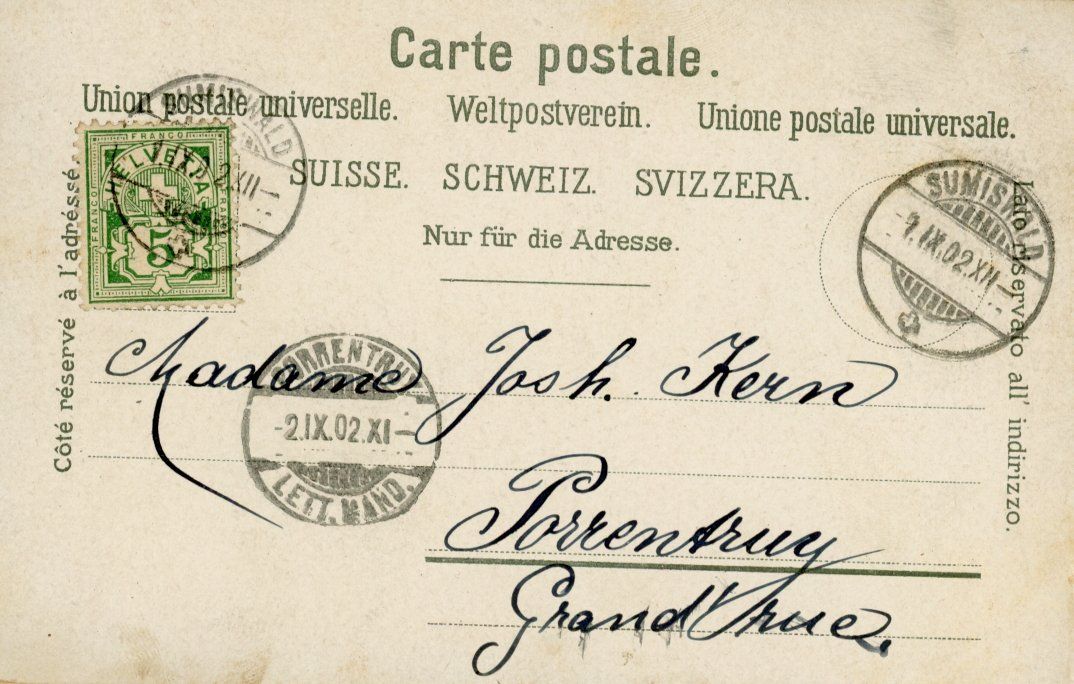 Carte postale.
Union postale universelle. Weltpostverein. Unione postale universale.
SUISSE. SCHWEIZ. SVIZZERA.
Nur für die Adresse.
Côté réservé à l'adresse.
Lato riservato all' indirizzo.
FRANCO
FRANCO
FRANCO
HELVETIA
5
SUMISWALD
XII
SUMISWALD
-1.IX.02.XII-
PORRENTRUY
-2.IX.02.XI-
LETT. MAND.
Madame Josh. Kern
Porrentruy
Grand'rue.